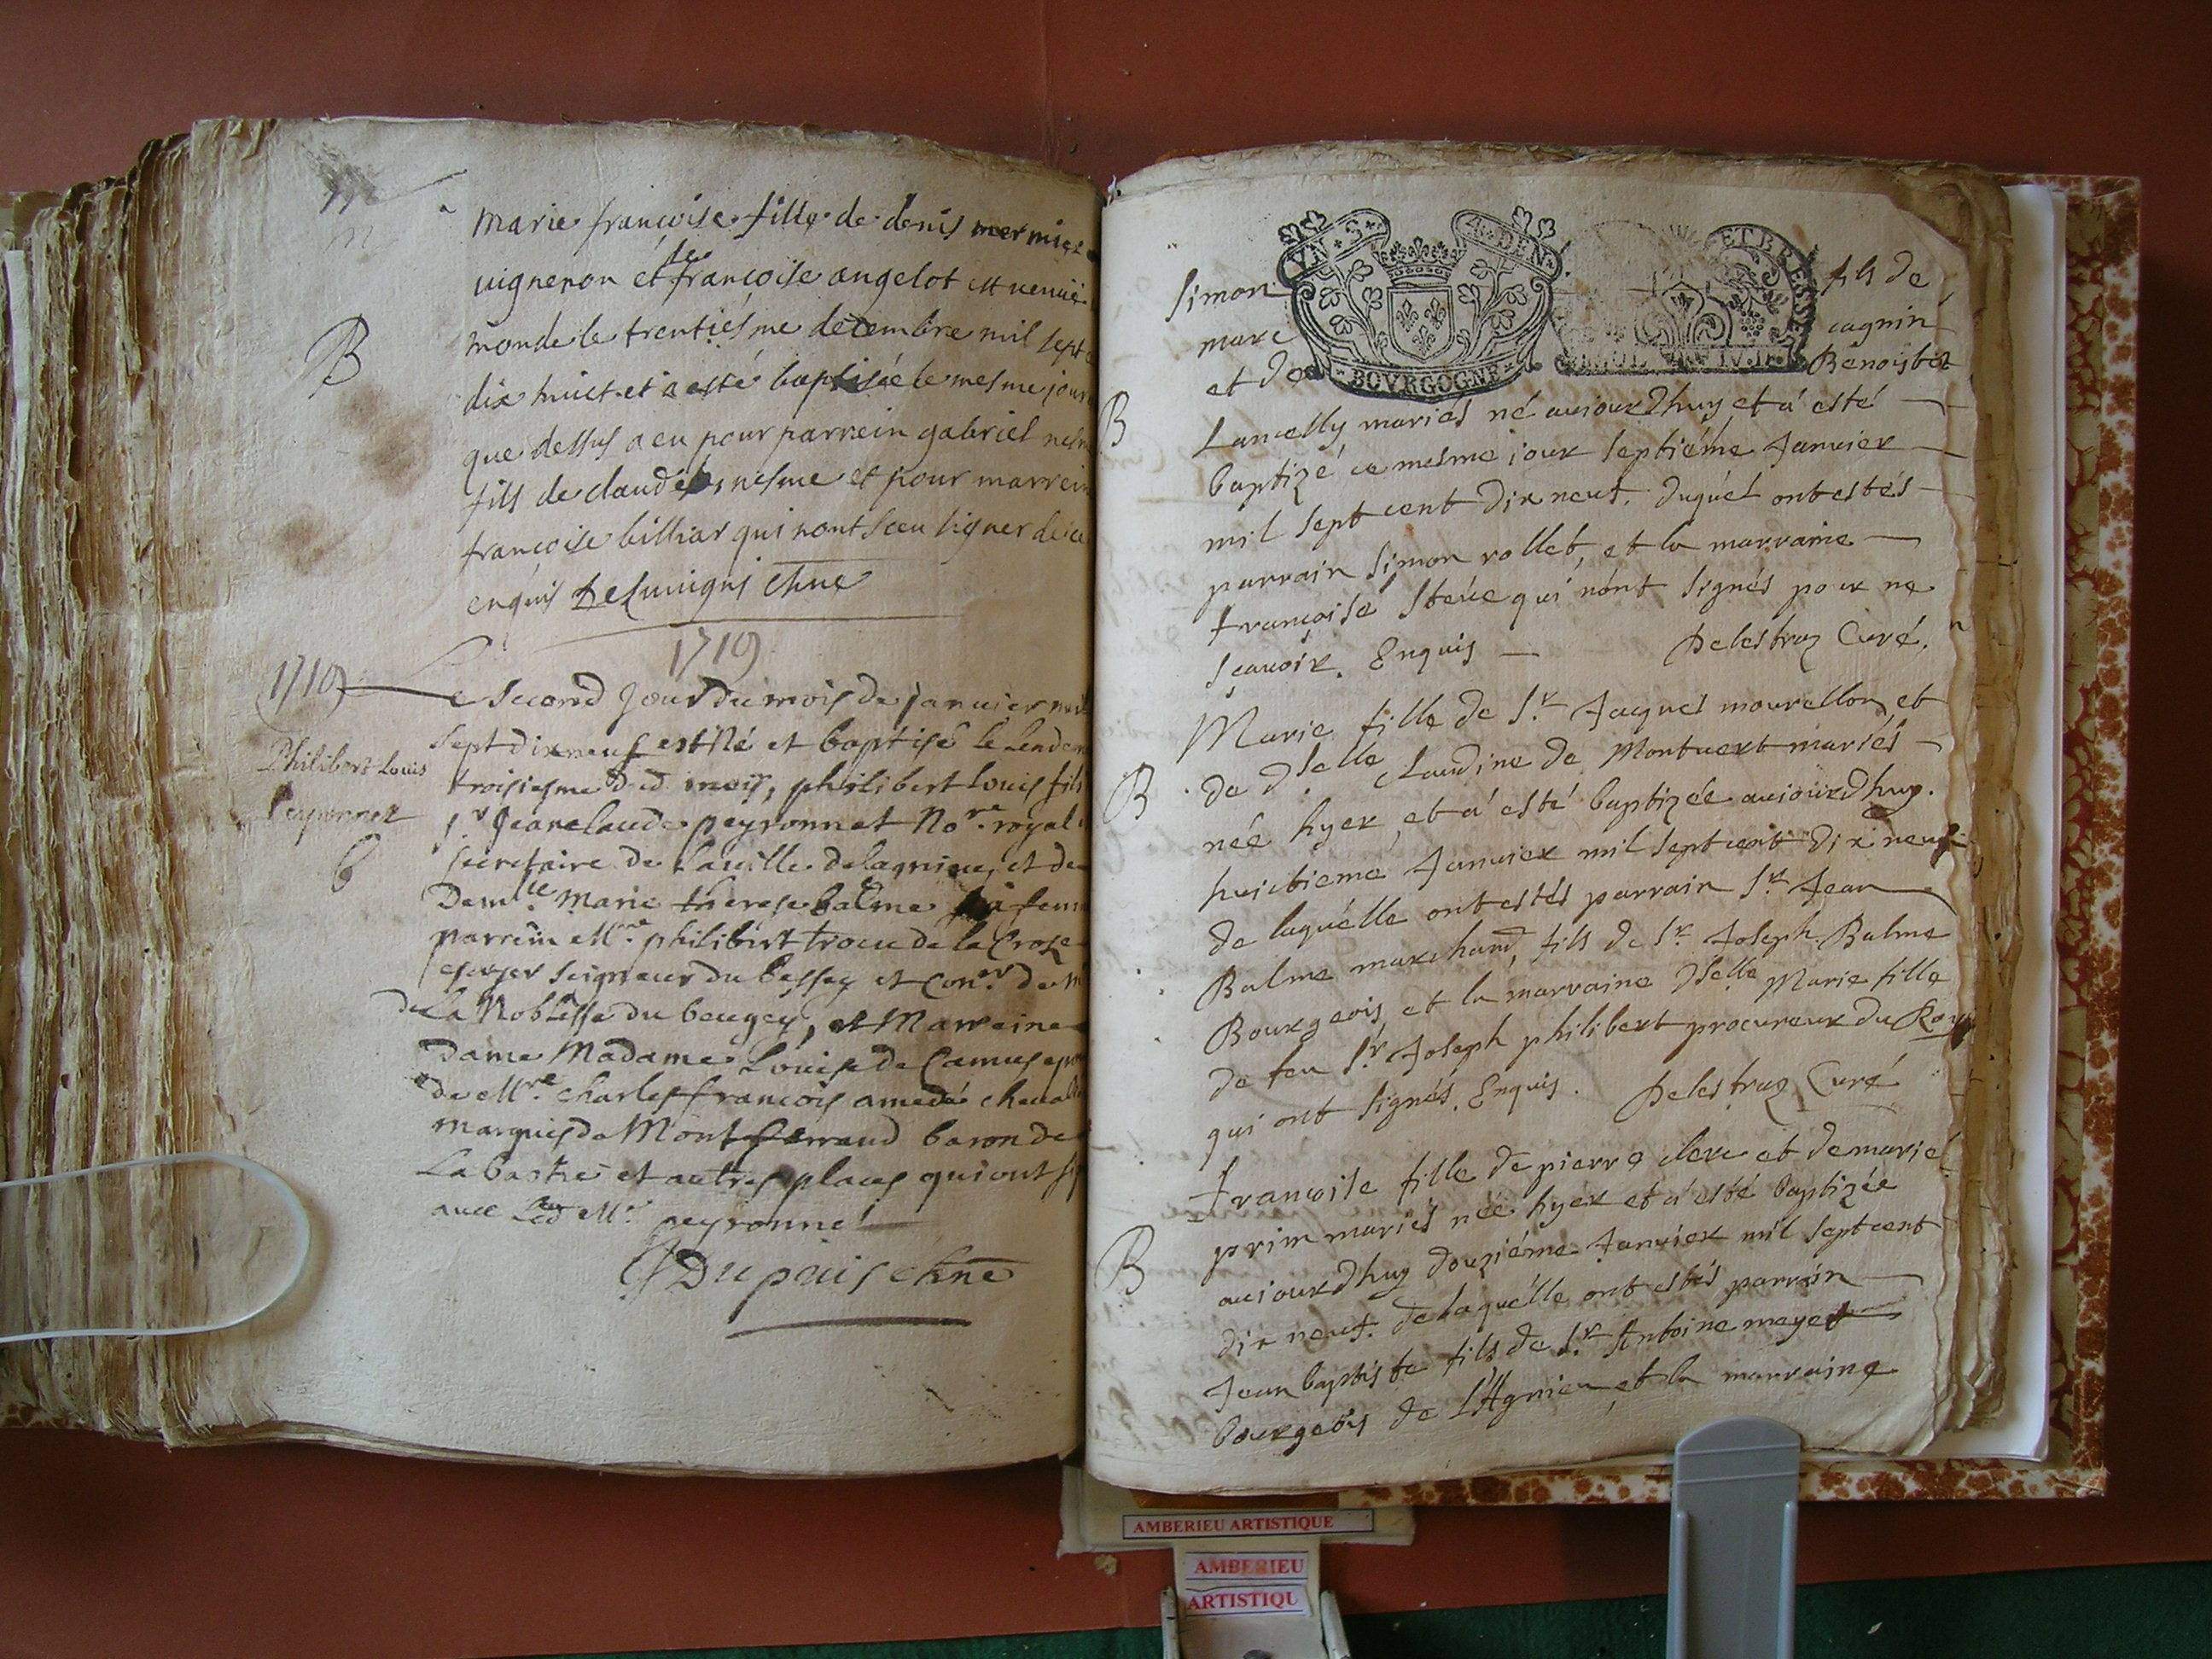 marie francoise fille de denis mermier
uigneron et de francoise angelot est venue
monde le trentiesme decembre mil sept
dix huict et a esté baptisée le mesme jour
B
que dessus a eu pour parrein gabriel
fils de claude nesme et pour marrein
francoise billiar qui nont sceu signer de ce
enquis Delauuigni
1719
1719
Le second Jour du mois de januier mil
sept dix neuf est Né et baptisé le lendem
Philibert Louis
troisiesme dud mois, philibert Louis fils
Peyronnet
s.r Jean claude peyronnet No.re royal
B
secretaire de la uille de lagnieu, et de
Dem.lle Marie therese balme sa femme
parrein M.re philibert trocu de la Croze
escuyer seigneur du bessey et Con.er de
de la Noblesse du beugey, et Marreine
dame Madame Louise de Camus
de M.re charles francois amedé cheual
marquis de Montferrand baron de
La bastie et autres places qui ont
auec Led M.r peyronnet
Dupuis
VN . S .
4 . DEN .
ET BRESSE
BOVRGOGNE
simon
fils de
marc
cagnin
et de
Benoiste
B
Lancelly mariés né aujourdhuy et a esté
baptizé ce mesme jour septiéme Januier
mil sept cent dix neuf. duquel ont estés
parrain simon rollet, et la marraine
francoise steue qui nont signés pour ne
scauoir. Enquis Delestraz Curé.
Marie fille de S.r Jacques mourellon et
B
de Dlelle Claudine de Montuert mariés
née hyer et a esté baptizée aujourdhuy
huictieme Januier mil sept cent dix neuf
de laquélle ont estés parrain S.r Jean
Balme marchand, fils de S.r Joseph Balme
Bourgeois et la marraine Dlelle Marie fille
de feu S.r Joseph philibert procureur du Roy
qui ont signés. Enquis. Delestraz Curé
francoise fille de pierre clerc et de marie
prim mariés née hyer et a esté baptizée
B
aujourdhuy douziéme Januier mil sept cent
dix neuf. de laquélle ont estés parrain
Jean baptiste fils de S.r Antoine mayet
bourgeois de L'Agnieu et la marraine
AMBERIEU ARTISTIQUE
AMBERIEU
ARTISTIQU